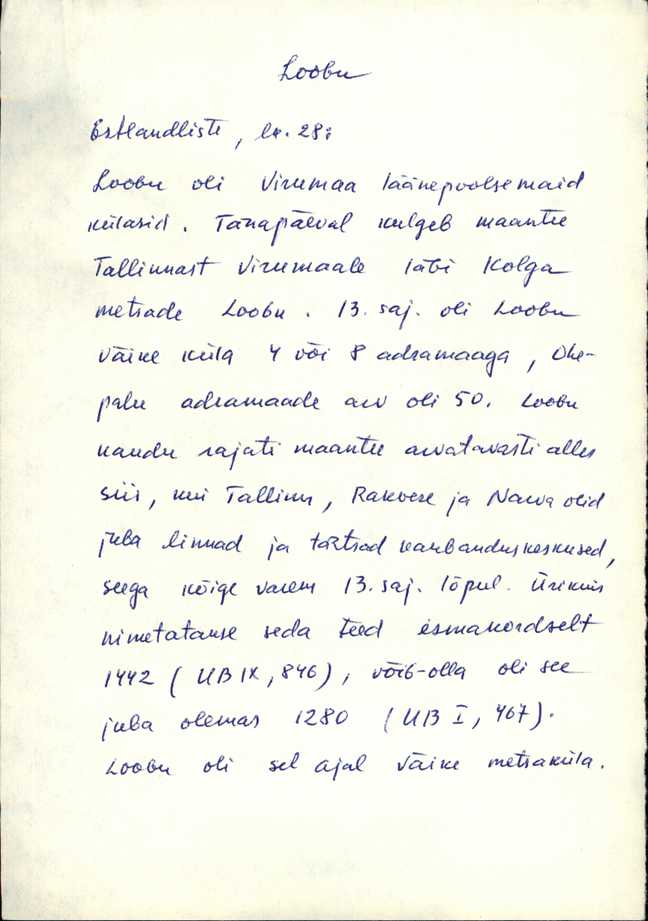 Loobu
Estlandliste, lk. 28:
Loobu oli Virumaa läänepoolsemaid
külasid. Tänapäeval kulgeb maantee
Tallinnast Virumaale läbi Kolga
metsade Loobu. 13. saj. oli Loobu
väike küla 4 või 8 adramaaga, Ohe-
palu adramaade arv oli 50. Loobu
kaudu rajati maantee arvatavasti alles
siis, kui Tallinn, Rakvere ja Narva olid
juba linnad ja tähtsad kaubanduskeskused,
seega kõige varem 13. saj. lõpul. Ürikuis
nimetatakse seda teed esmakordselt
1442 (UB IX, 846), võib-olla oli see
juba olemas 1280 (UB I, 467).
Loobu oli sel ajal väike metsaküla.